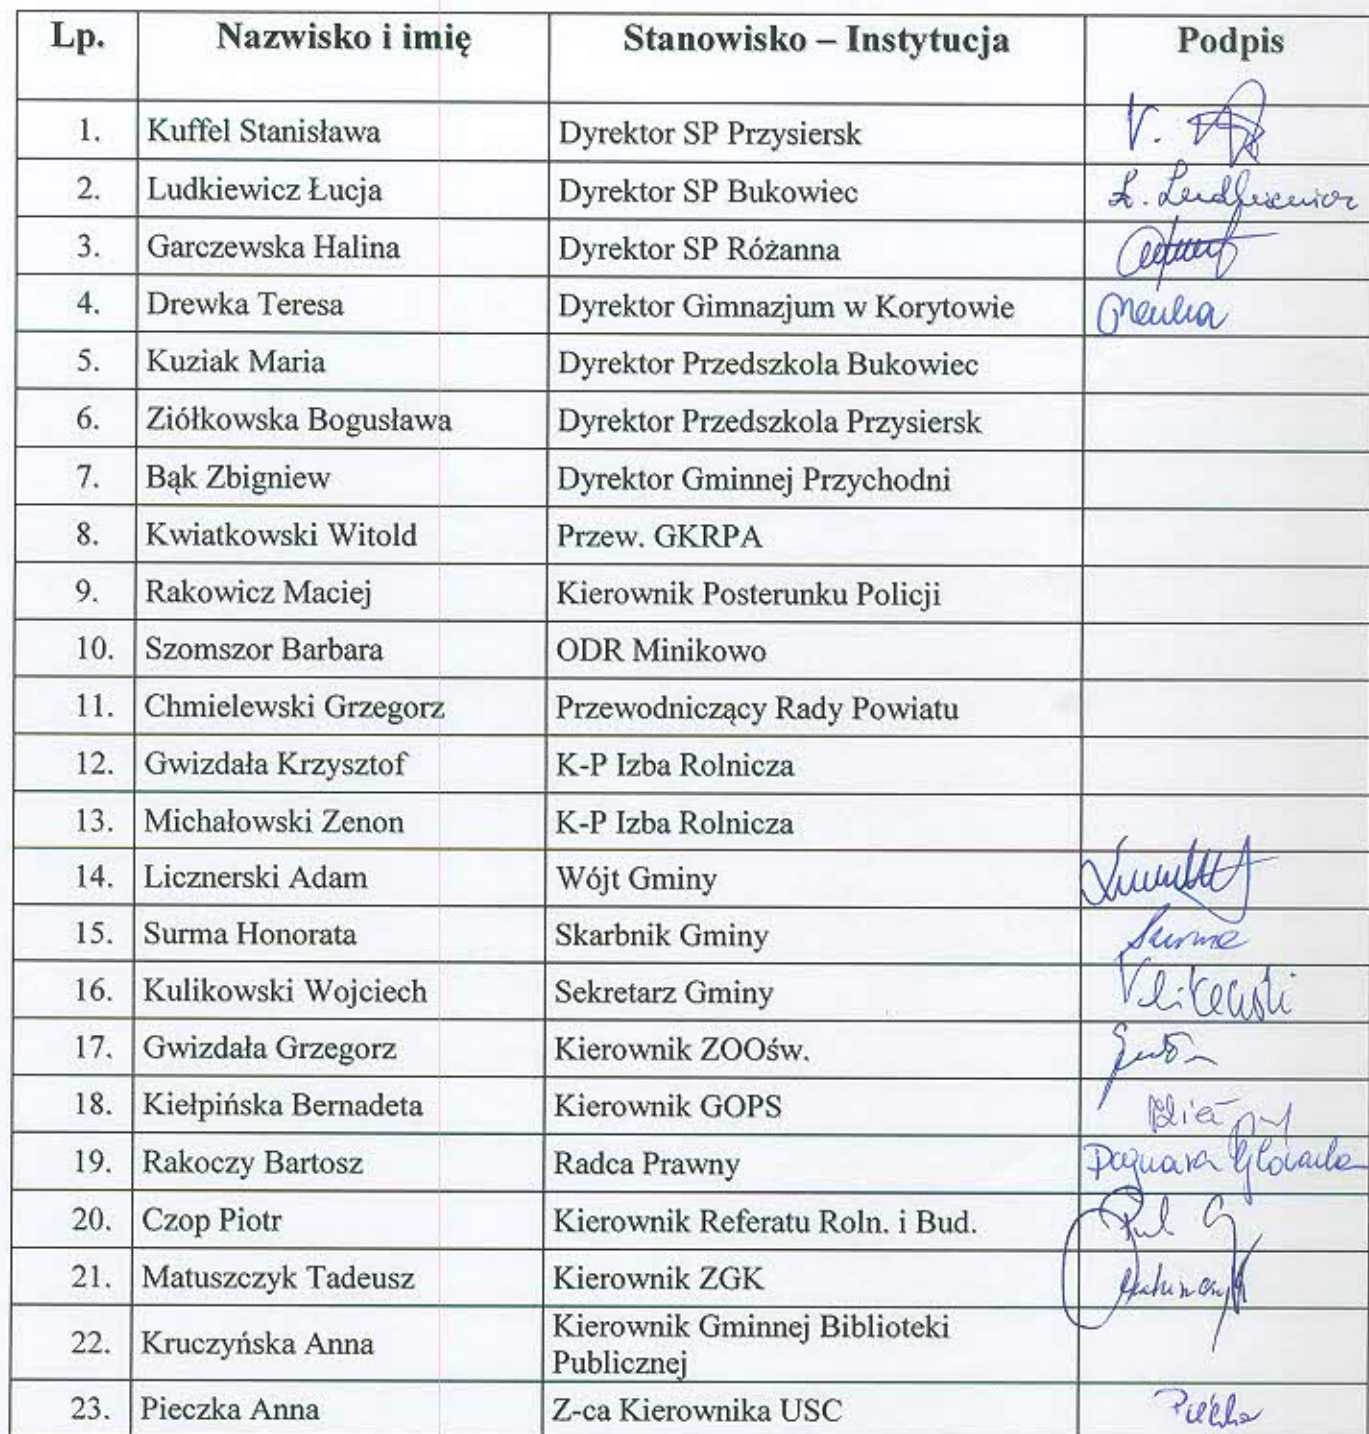 Lp. Nazwisko i imię Stanowisko – Instytucja Podpis
1. Kuffel Stanisława Dyrektor SP Przysiersk
2. Ludkiewicz Łucja Dyrektor SP Bukowiec Ł. Ludkiewicz
3. Garczewska Halina Dyrektor SP Różanna
4. Drewka Teresa Dyrektor Gimnazjum w Korytowie Drewka
5. Kuziak Maria Dyrektor Przedszkola Bukowiec
6. Ziółkowska Bogusława Dyrektor Przedszkola Przysiersk
7. Bąk Zbigniew Dyrektor Gminnej Przychodni
8. Kwiatkowski Witold Przew. GKRPA
9. Rakowicz Maciej Kierownik Posterunku Policji
10. Szomszor Barbara ODR Minikowo
11. Chmielewski Grzegorz Przewodniczący Rady Powiatu
12. Gwizdała Krzysztof K-P Izba Rolnicza
13. Michałowski Zenon K-P Izba Rolnicza
14. Licznerski Adam Wójt Gminy
15. Surma Honorata Skarbnik Gminy Surma
16. Kulikowski Wojciech Sekretarz Gminy
17. Gwizdała Grzegorz Kierownik ZOOśw.
18. Kiełpińska Bernadeta Kierownik GOPS
19. Rakoczy Bartosz Radca Prawny Dagmara
20. Czop Piotr Kierownik Referatu Roln. i Bud.
21. Matuszczyk Tadeusz Kierownik ZGK
22. Kruczyńska Anna Kierownik Gminnej Biblioteki
Publicznej
23. Pieczka Anna Z-ca Kierownika USC Pieczka